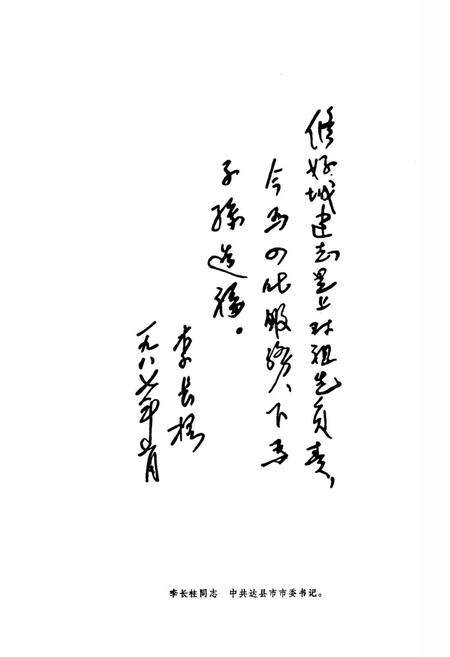 修好城建志是上对祖先负责，
今为四化服务，下为
子孙造福。
李长柱
一九八七年五月
李长柱同志　中共达县市市委书记。